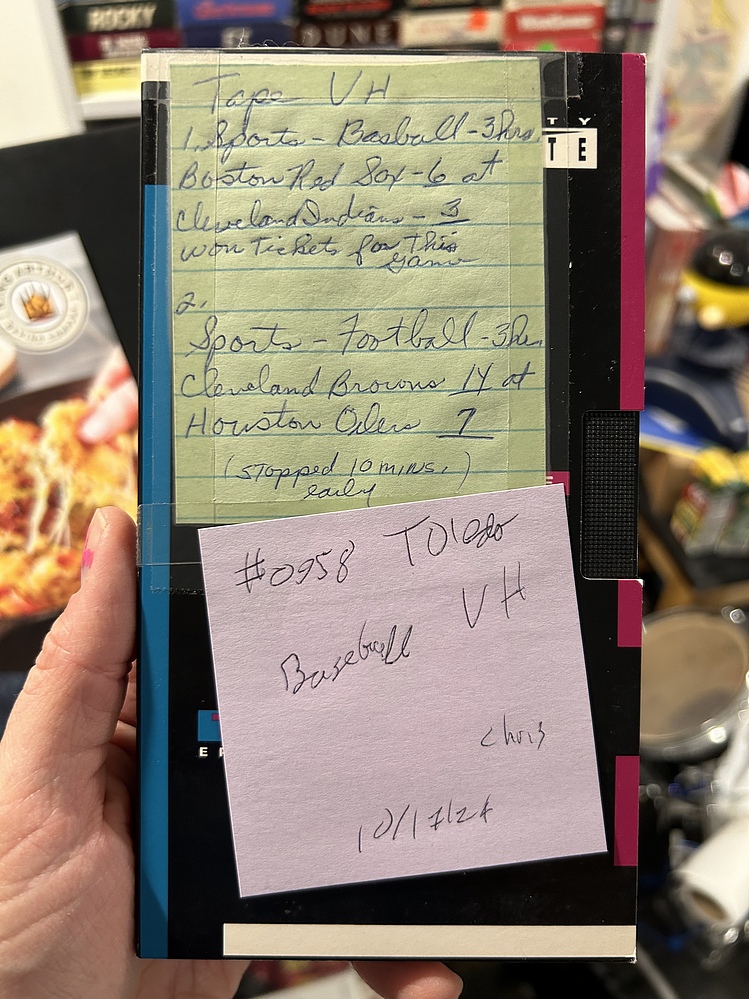 ROCKY
DUNE
Tape VH
1. Sports - Basball - 3hrs.
Boston Red Sox - 6 at
Cleveland Indians - 3
won tickets for this
game
2.
Sports - Football - 3hr.
Cleveland Browns 14 at
Houston Oilers 7
(stopped 10 mins.)
early
T Y
T E
#0958 Toledo
VH
Baseball
Chris
10/17/24